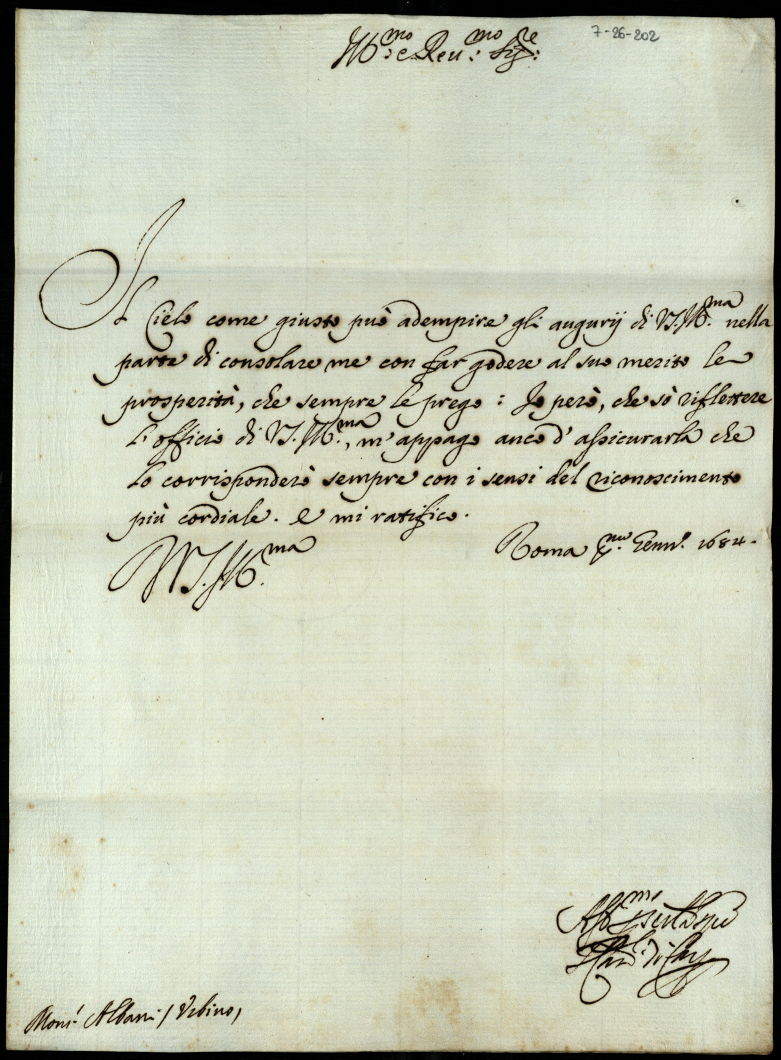 Ill.mo e Reu.mo Sig.re
7-26-202
Il Cielo come giusto può adempire gli augurij di V.S.Ill.ma nella
parte di consolare me con far godere al suo merito le
prosperità, che sempre le prego: Io però, che sò riflettere
l'officio di V.S.Ill.ma, m'appago anco d'assicurarla che
lo corrisponderò sempre con i sensi del riconoscimento
più cordiale. e mi ratifico.
Roma Genn.o 1684.
V.S.Ill.ma
Aff.mo per
Card.l di
Mons.r Albani / Vrbino /